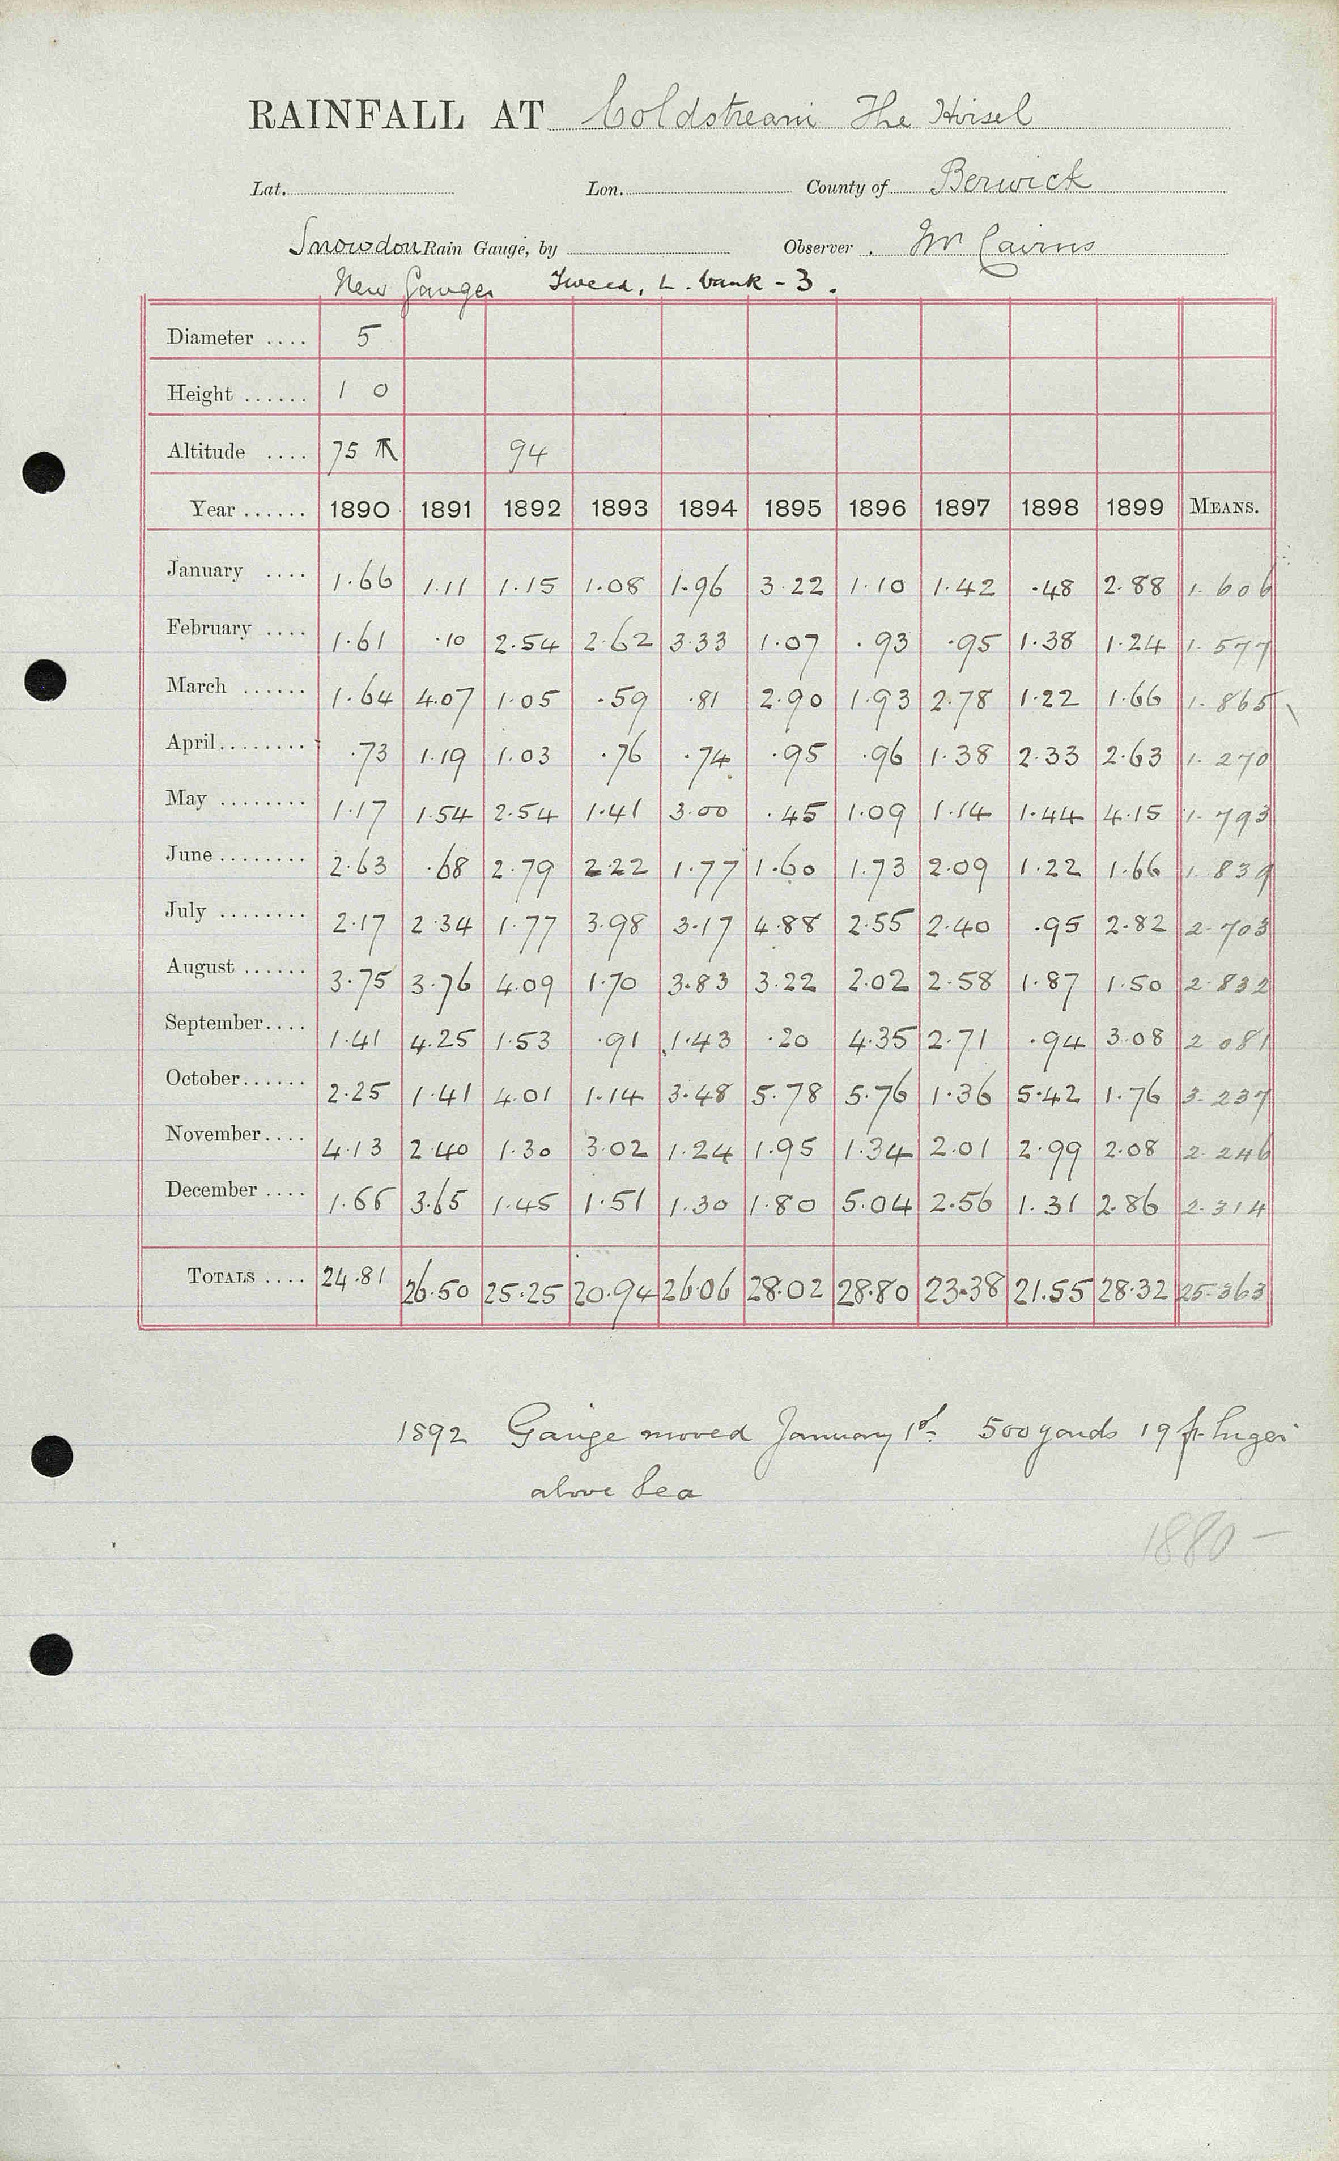 RAINFALL AT Coldstream The Hirsel
Lat. Lon. County of Berwick
Snowdon Rain Gauge, by Observer . Mr Cairns
New Gauge Tweed, L. bank - 3.
Diameter .... 5
Height ...... 1 0
Altitude .... 75 94
Year ...... 1890 1891 1892 1893 1894 1895 1896 1897 1898 1899 MEANS.
January .... 1.66 1.11 1.15 1.08 1.96 3.22 1.10 1.42 .48 2.88 1.606
February .... 1.61 .10 2.54 2.62 3.33 1.07 .93 .95 1.38 1.24 1.577
March ...... 1.64 4.07 1.05 .59 .81 2.90 1.93 2.78 1.22 1.66 1.865
April ........ .73 1.19 1.03 .76 .74 .95 .96 1.38 2.33 2.63 1.270
May ........ 1.17 1.54 2.54 1.41 3.00 .45 1.09 1.14 1.44 4.15 1.793
June ........ 2.63 .68 2.79 2.22 1.77 1.60 1.73 2.09 1.22 1.66 1.839
July ........ 2.17 2.34 1.77 3.98 3.17 4.88 2.55 2.40 .95 2.82 2.703
August ...... 3.75 3.76 4.09 1.70 3.83 3.22 2.02 2.58 1.87 1.50 2.832
September.... 1.41 4.25 1.53 .91 1.43 .20 4.35 2.71 .94 3.08 2.081
October...... 2.25 1.41 4.01 1.14 3.48 5.78 5.76 1.36 5.42 1.76 3.237
November.... 4.13 2.40 1.30 3.02 1.24 1.95 1.34 2.01 2.99 2.08 2.246
December .... 1.66 3.65 1.45 1.51 1.30 1.80 5.04 2.56 1.31 2.86 2.314
TOTALS .... 24.81 26.50 25.25 20.94 26.06 28.02 28.80 23.38 21.55 28.32 25.363
1892 Gauge moved January 1st. 500 yards 19 ft higher
above Sea
1880 -